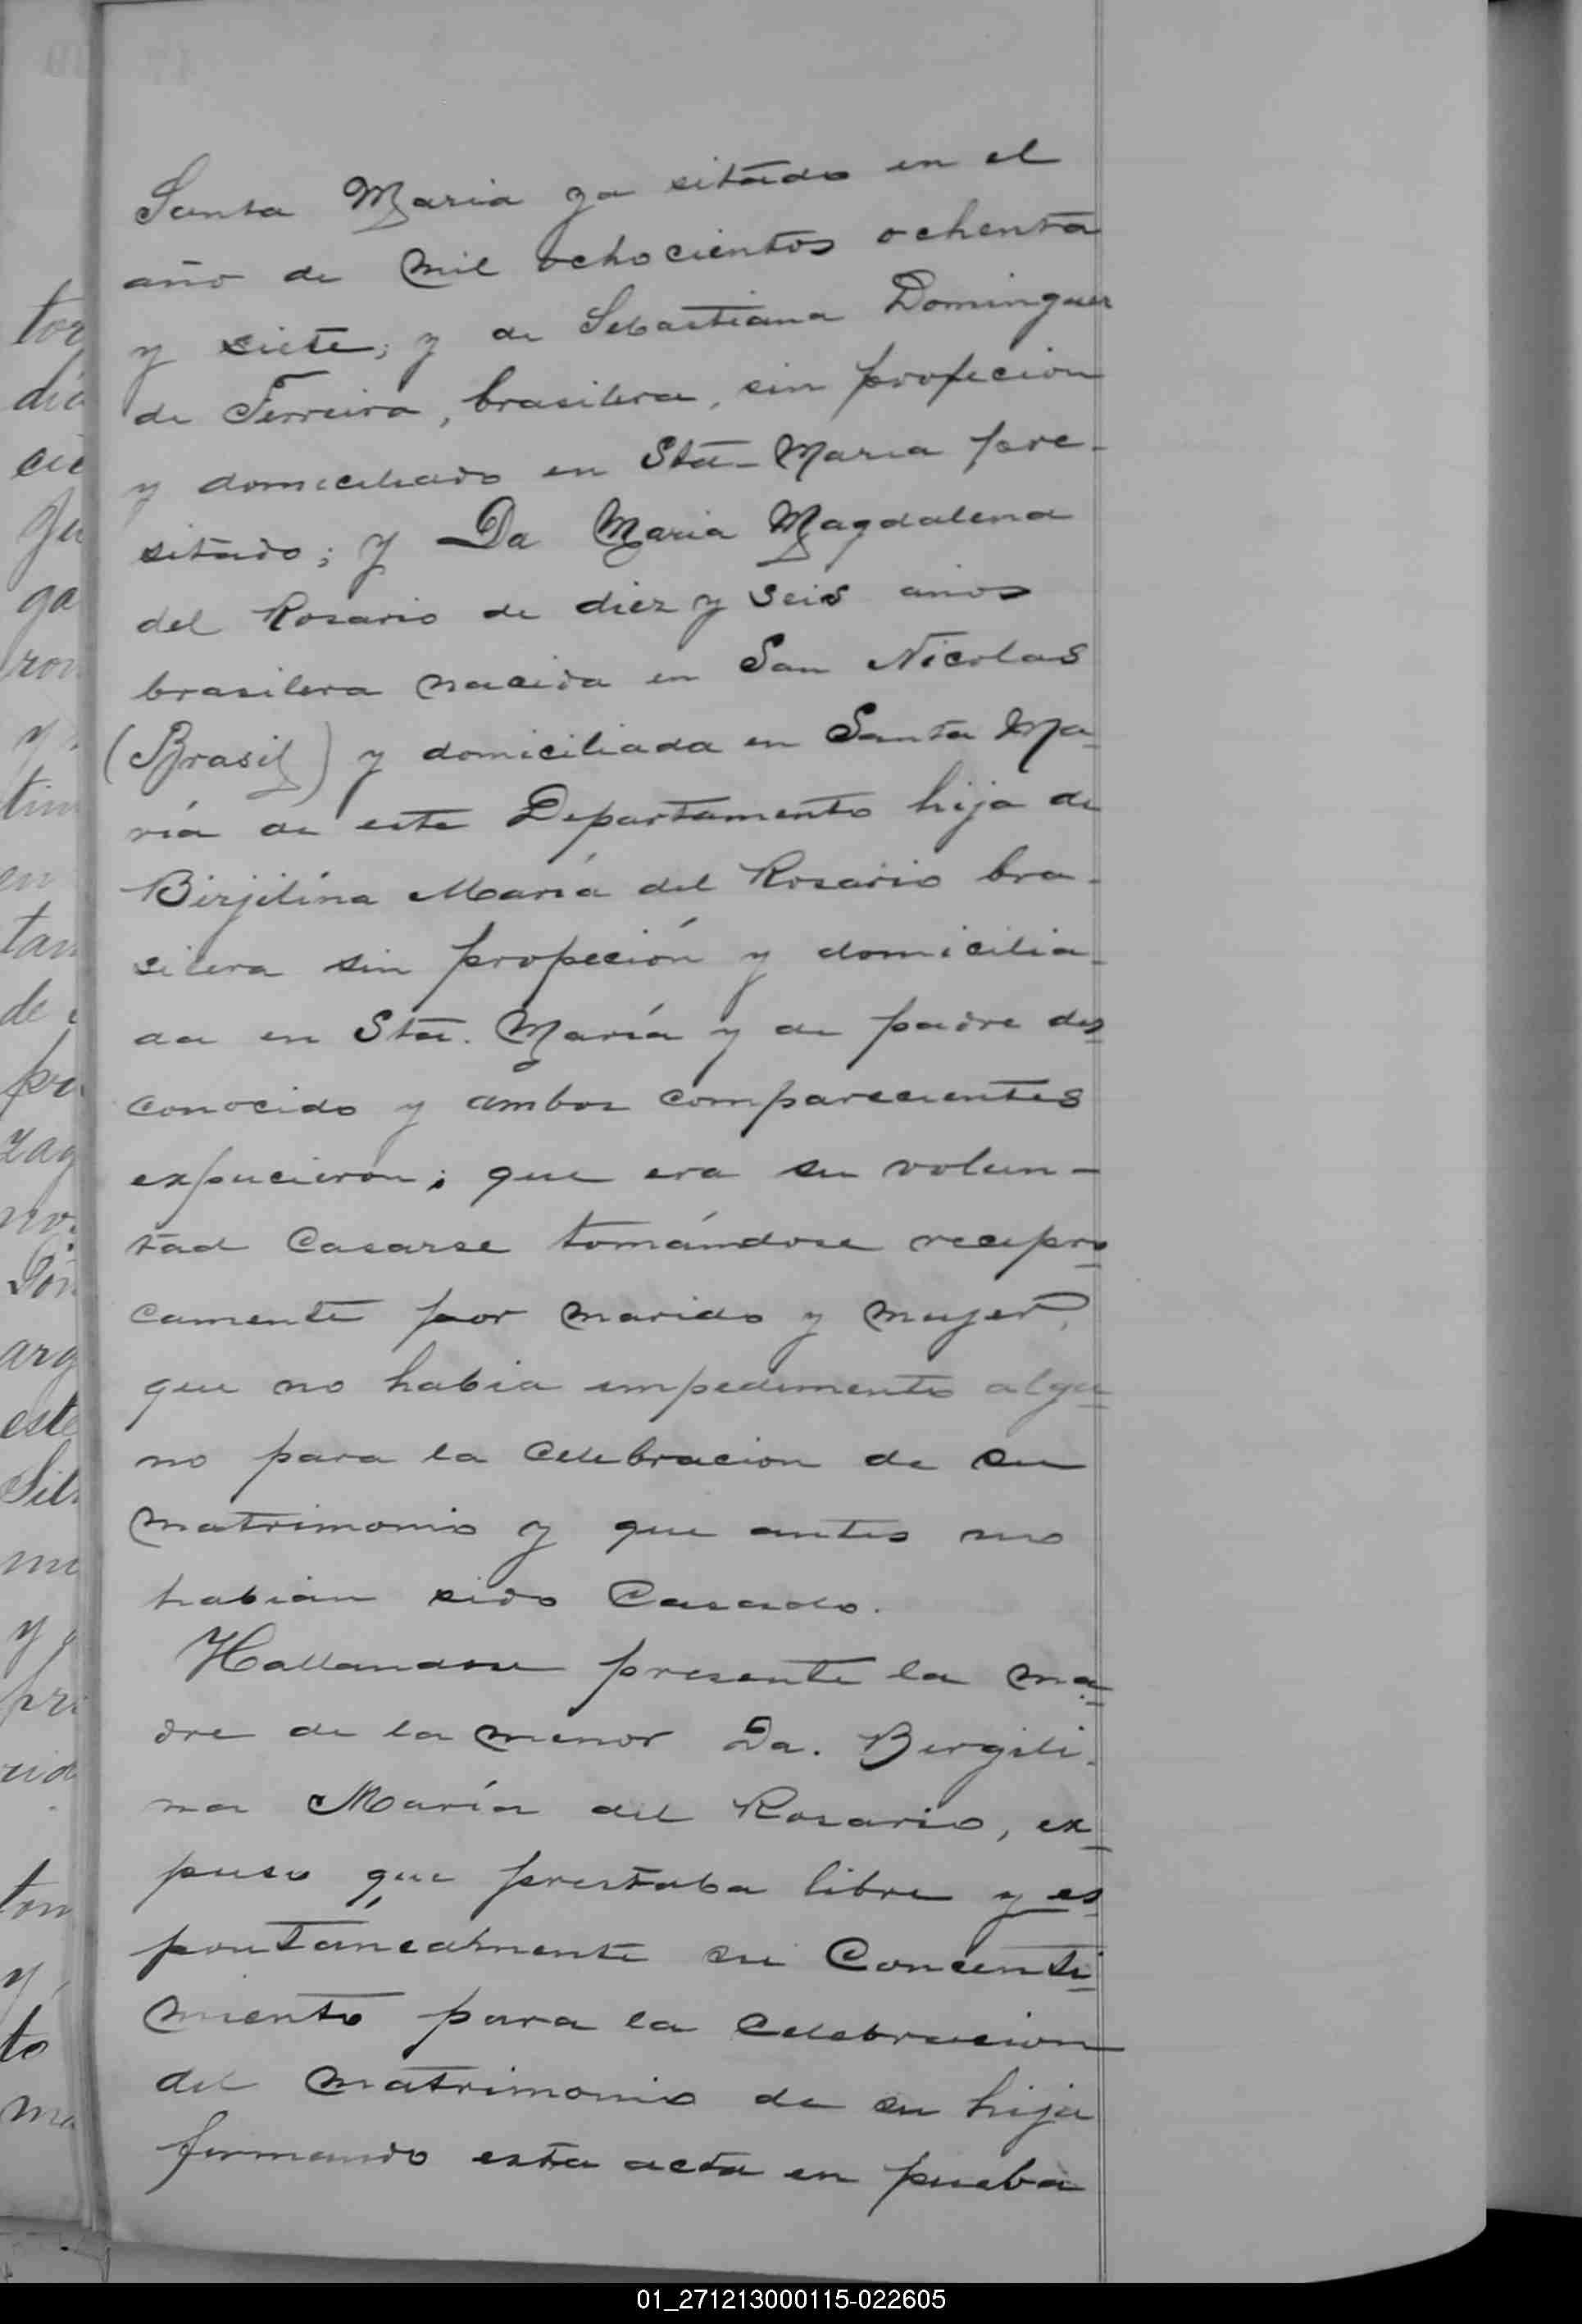 Santa Maria ya sitado en el
año de mil ochocientos ochenta
y siete; y de Sebastiana Dominguez
de Ferreira, brasilera, sin profecion
y domiciliado en Sta- Maria pre-
sitado; y Da Maria Magdalena
del Rosario de diez y seis años
brasilera nacida en San Nicolas
(Brasil) y domiciliada en Santa Ma-
ría de este Departamento hija de
Birjilína María del Rosario bra-
silera sin profeción y domicilia-
da en Sta. María y de padre des-
conocido y ambos comparecientes
expucieron; que era su volun-
tad casarse tomándose recipro-
camente por marido y mujer,
que no habia impedimento algu-
no para la celebracion de su
matrimonio y que antes no
habian sido Casado.
Hallandose presente la ma-
dre de la menor Da. Birgili-
na María del Rosario, ex-
puso que prestaba libre y es-
pontaneamente su Concenti-
miento para la celebracion
del matrimonio de su hija
firmando esta acta en prueba
tor
día
cie
ga
ron
y
tim
en
tan
de
pr
zag
no.
arg
este
mi
y
pri
tom
y
to
ma
01_271213000115-022605